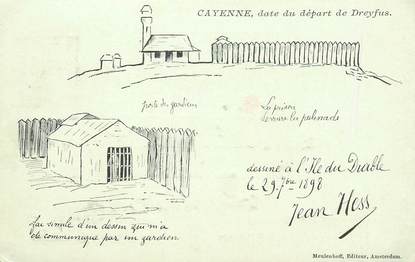 CAYENNE, date du départ de Dreyfus.
poste de gardien
La prison
derrière la palissade
dessiné à l'Ile du Diable
le 29 7bre 1898
Jean Hess
fac simile d'un dessin qui m'a
été communiqué par un gardien
Meulenhoff, Editeur, Amsterdam.